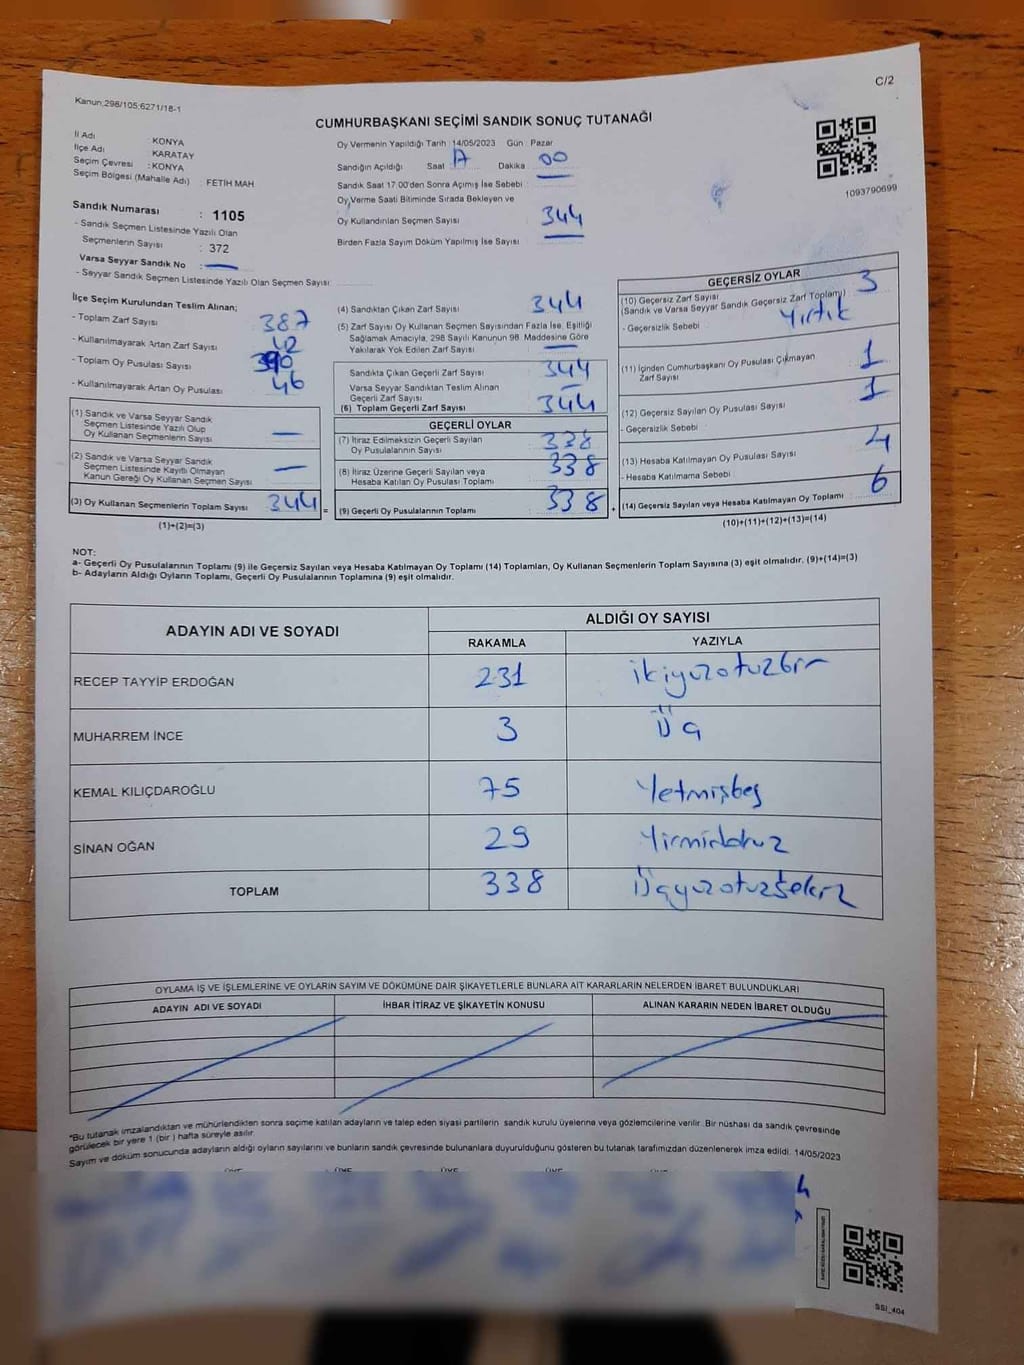 C/2
Kanun:298/105;6271/18-1
CUMHURBAŞKANI SEÇİMİ SANDIK SONUÇ TUTANAĞI
İl Adı : KONYA
İlçe Adı : KARATAY
Seçim Çevresi : KONYA
Seçim Bölgesi (Mahalle Adı) : FETİH MAH
Sandık Numarası : 1105
- Sandık Seçmen Listesinde Yazılı Olan
Seçmenlerin Sayısı : 372
Varsa Seyyar Sandık No :
- Seyyar Sandık Seçmen Listesinde Yazılı Olan Seçmen Sayısı:
Oy Vermenin Yapıldığı Tarih 14/05/2023 Gün : Pazar
Sandığın Açıldığı Saat 17 Dakika : 00
Sandık Saat 17.00'den Sonra Açımış İse Sebebi :
Oy Verme Saati Bitiminde Sırada Bekleyen ve
Oy Kullandırılan Seçmen Sayısı : 344
Birden Fazla Sayım Döküm Yapılmış İse Sayısı
1093790699
İlçe Seçim Kurulundan Teslim Alınan;
- Toplam Zarf Sayısı 387
- Kullanılmayarak Artan Zarf Sayısı
- Toplam Oy Pusulası Sayısı
- Kullanılmayarak Artan Oy Pusulası : 46
(1) Sandık ve Varsa Seyyar Sandık
Seçmen Listesinde Yazılı Olup
Oy Kullanan Seçmenlerin Sayısı
(2) Sandık ve Varsa Seyyar Sandık
Seçmen Listesinde Kayıtlı Olmayan
Kanun Gereği Oy Kullanan Seçmen Sayısı
(3) Oy Kullanan Seçmenlerin Toplam Sayısı 344 =
(1)+(2)=(3)
(4) Sandıktan Çıkan Zarf Sayısı 344
(5) Zarf Sayısı Oy Kullanan Seçmen Sayısından Fazla İse, Eşitliği
Sağlamak Amacıyla, 298 Sayılı Kanunun 98. Maddesine Göre
Yakılarak Yok Edilen Zarf Sayısı
Sandıkta Çıkan Geçerli Zarf Sayısı 344
Varsa Seyyar Sandıktan Teslim Alınan
Geçerli Zarf Sayısı
(6) Toplam Geçerli Zarf Sayısı 344
GEÇERLİ OYLAR
(7) İtiraz Edilmeksizin Geçerli Sayılan
Oy Pusulalarının Sayısı 338
(8) İtiraz Üzerine Geçerli Sayılan veya
Hesaba Katılan Oy Pusulası Toplamı 338
(9) Geçerli Oy Pusulalarının Toplamı 338 +
GEÇERSİZ OYLAR
(10) Geçersiz Zarf Sayısı 3
(Sandık ve Varsa Seyyar Sandık Geçersiz Zarf Toplamı)
- Geçersizlik Sebebi yırtık
(11) İçinden Cumhurbaşkanı Oy Pusulası Çıkmayan
Zarf Sayısı 1
(12) Geçersiz Sayılan Oy Pusulası Sayısı 1
- Geçersizlik Sebebi
(13) Hesaba Katılmayan Oy Pusulası Sayısı 4
- Hesaba Katılmama Sebebi
(14) Geçersiz Sayılan veya Hesaba Katılmayan Oy Toplamı 6
(10)+(11)+(12)+(13)=(14)
NOT:
a- Geçerli Oy Pusulalarının Toplamı (9) ile Geçersiz Sayılan veya Hesaba Katılmayan Oy Toplamı (14) Toplamları, Oy Kullanan Seçmenlerin Toplam Sayısına (3) eşit olmalıdır. (9)+(14)=(3)
b- Adayların Aldığı Oyların Toplamı, Geçerli Oy Pusulalarının Toplamına (9) eşit olmalıdır.
ADAYIN ADI VE SOYADI
ALDIĞI OY SAYISI
RAKAMLA YAZIYLA
RECEP TAYYİP ERDOĞAN 231 ikiyüzotuzbir
MUHARREM İNCE 3 Üç
KEMAL KILIÇDAROĞLU 75 Yetmişbeş
SİNAN OĞAN 29 Yirmidokuz
TOPLAM 338 Üçyüzotuzsekiz
OYLAMA İŞ VE İŞLEMLERİNE VE OYLARIN SAYIM VE DÖKÜMÜNE DAİR ŞİKAYETLERLE BUNLARA AİT KARARLARIN NELERDEN İBARET BULUNDUKLARI
ADAYIN ADI VE SOYADI İHBAR İTİRAZ VE ŞİKAYETİN KONUSU ALINAN KARARIN NEDEN İBARET OLDUĞU
*Bu tutanak imzalandıktan ve mühürlendikten sonra seçime katılan adayların ve talep eden siyasi partilerin sandık kurulu üyelerine veya gözlemcilerine verilir. Bir nüshası da sandık çevresinde
görülecek bir yere 1 (bir) hafta süreyle asılır.
Sayım ve döküm sonucunda adayların aldığı oyların sayılarını ve bunların sandık çevresinde bulunanlara duyurulduğunu gösteren bu tutanak tarafımızdan düzenlenerek imza edildi. 14/05/2023
SSI_404